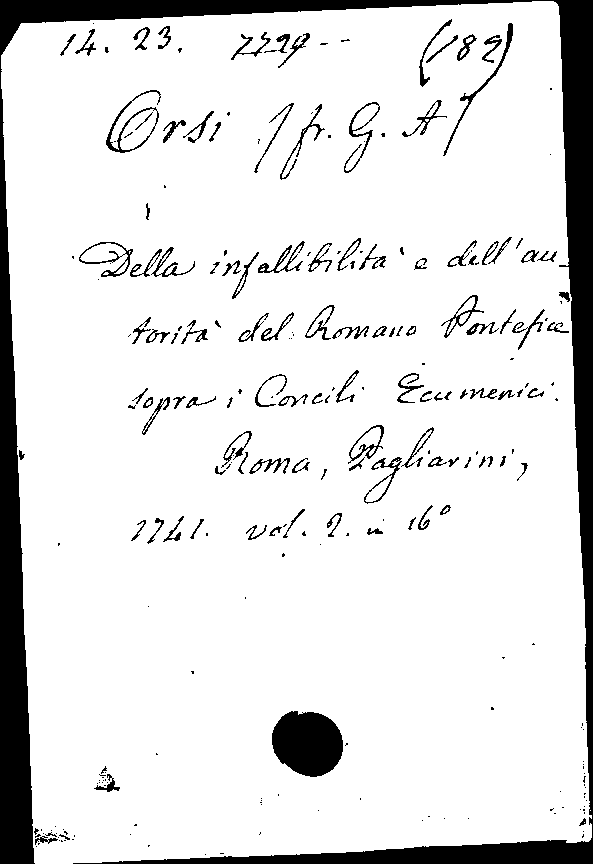 14. 23. 7729-- (182)
Orsi /fr. G. A/
Della infallibilità e dell'au-
torità del Romano Pontefice
sopra i Concili Ecumenici.
Roma, Pagliarini,
1741. vol. 2. in 16°